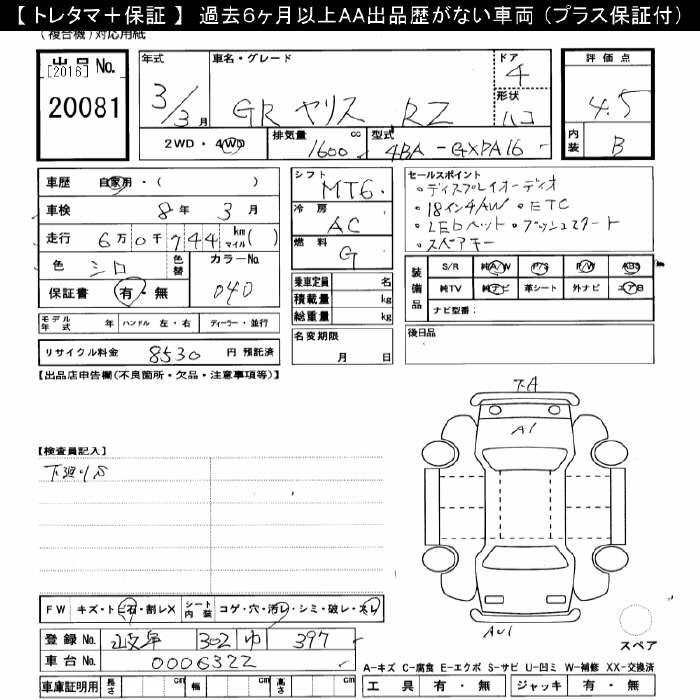 【 トレタマ＋保証 】 過去6ヶ月以上AA出品歴がない車両 (プラス保証付)
(複合機)対応用紙
出品 No.
[2016]
20081
年式
3/3月
車名・グレード
GR ヤリス RZ
ドア
4
形状
ハコ
評価点
4.5
内装
B
2WD・4WD
排気量
1600 cc
型式
4BA-GXPA16
車歴 自家用・( )
車検 8年 3月
走行 6万0千744 km マイル ( )
色 シロ
色替
カラーNo.
040
保証書 有・無
シフト
MT6
冷房
AC
燃料
G
乗車定員 名
積載量 kg
総重量 kg
セールスポイント
・ディスプレイオーディオ
・18インチAW ・ETC
・LEDヘッド ・プッシュスタート
・スペアキー
装備品
S/R 純A/W P/S P/W ABS
純TV 純ナビ 革シート 外ナビ エアB
ナビ型番：
モデル年式 年 ハンドル 左・右 ディーラー・並行
リサイクル料金 8530 円 預託済
名変期限
月 日
後日品
【出品店申告欄(不良箇所・欠品・注意事項等)】
下A
A1
【検査員記入】
下廻りS
AU1
FW キズ・トビ石・割レX
シート内装 コゲ・穴・汚レ・シミ・破レ・スレ
登録No. 岐阜 302 397
車台No. 0006322
車庫証明用 長さ cm 幅 cm 高さ cm
スペア
A-キズ C-腐食 E-エクボ S-サビ U-凹ミ W-補修 XX-交換済
工具 有・無 ジャッキ 有・無